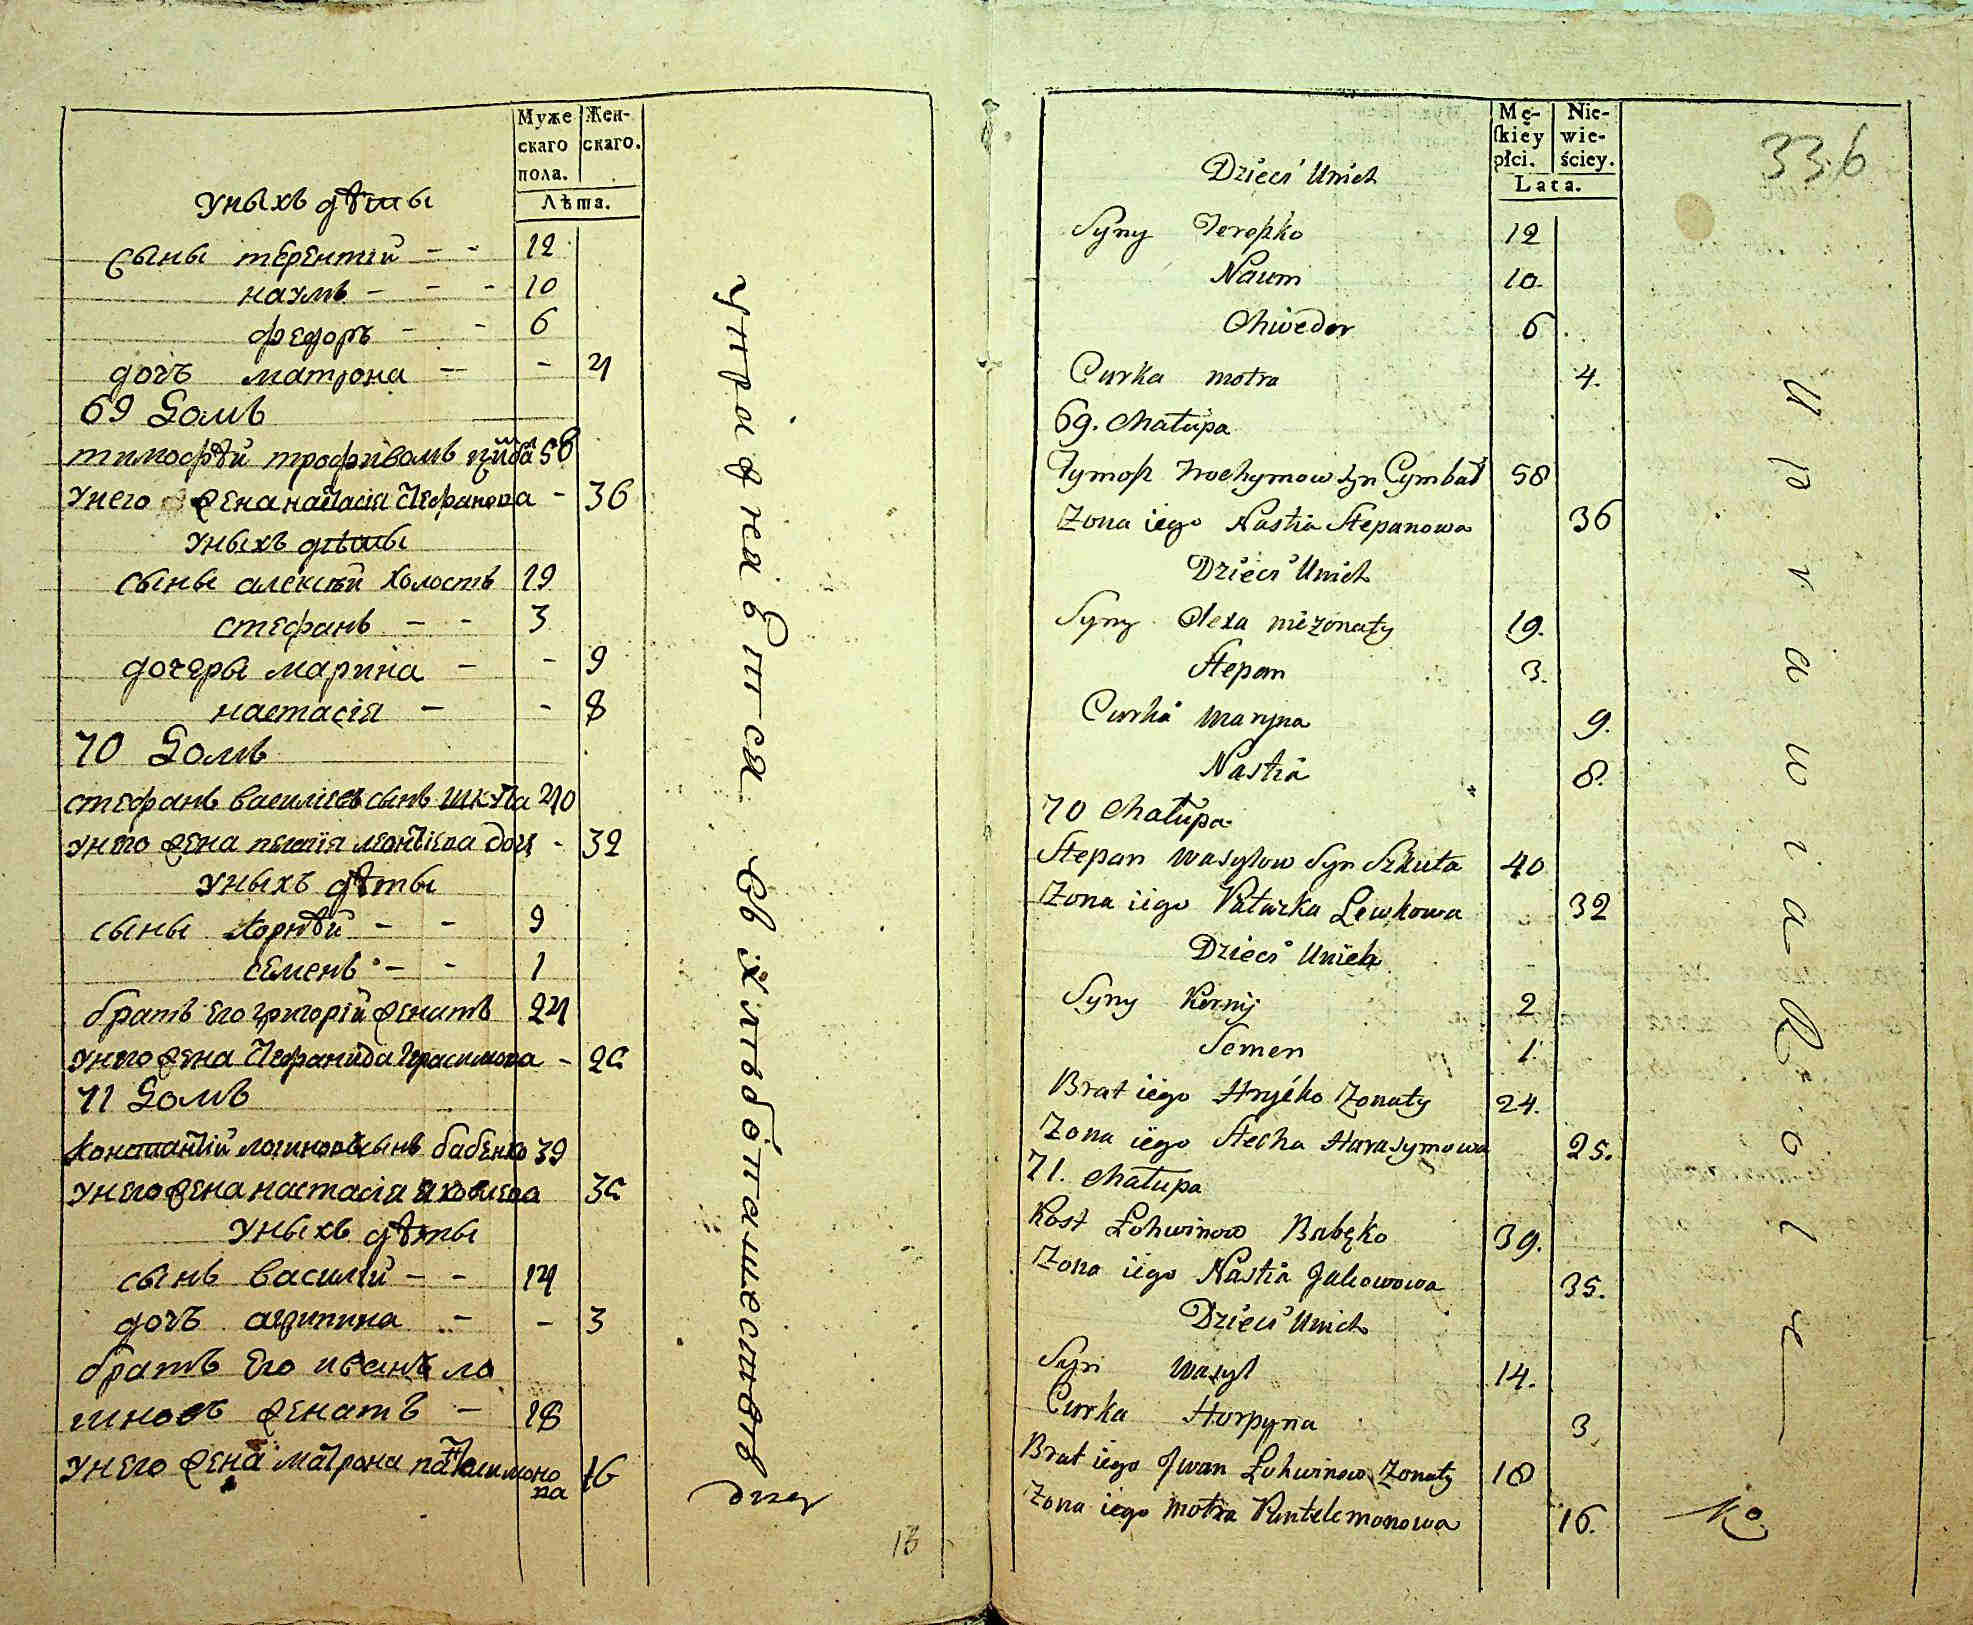 Муже
скаго
пола.
Жен-
скаго.
Лѣта.
Уныхъ дѣты
сыны терентій - - 12
наумъ - - - 10
федоръ - - 6
дочъ матрона - - 4
69 Домъ
тимофѣй трофивомъ 58
Унего жена настасія Стефанова - 36
Уныхъ дѣты
сыны алексѣй холостъ 19
стефанъ - - 3
дочеры марина - - 9
настасія - - 8
70 Домъ
стефанъ василіевъ сынъ шкута 40
унего жена пелагія леонтіева доч - 32
Уныхъ дѣты
сыны Корнѣй - - 9
семенъ - - 1
братъ его григорій женатъ 24
унего жена Стефанида Герасимова - 25
71 Домъ
Константій логиновъ сынъ бабенко 39
унего жена настасія яковлева 35
Уныхъ дѣты
сынъ василій - - 14
дочъ агрипина - - 3
братъ Его иванъ ло
гиновъ женатъ - 18
унего жена матрона пателимоно
ва 16
упражняется въ хлѣбопашествѣ
13
Mę-
skiey
płci.
Nie-
wie-
ściey.
Lata.
336
Dzieci Unich
Syny Tereszko 12
Naum 10.
Chwedor 6.
Curka motra 4.
69. Chałupa
Tymosz Trochymow syn Cymbał 58
Zona iego Nastia Stepanowa 36
Dzieci Unich
Syny Olexa niezonaty 19.
Stepan 3.
Curka Maryna 9.
Nastia 8.
70 Chałupa
Stepan Wasylow Syn Szkuta 40
Zona iego Pałazka Lewkowa 32
Dzieci Unich
Syny Kornij 2
Semen 1.
Brat iego Hryćko Zonaty 24.
Zona iego Stecha Harasymowa 25.
71. Chałupa
Kost Łohwinow Babęko 39.
Zona iego Nastia Jakowowa 35.
Dzieci Unich
Syn Wasyl 14.
Curka Horpyna 3
Brat iego Jwan Łohwinow Zonaty 18
Zona iego Motra Pantelemonowa 16.
Uprawia Rolę